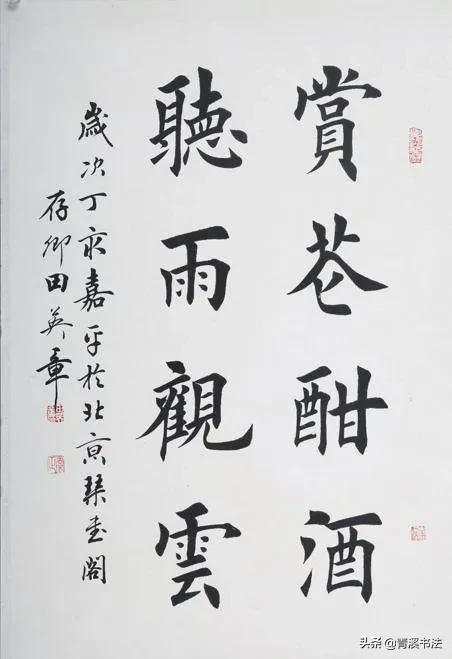 賞花酣酒
聽雨觀雲
歲次丁亥嘉平於北京琴書閣
存卿田英章
头条@青溪书法